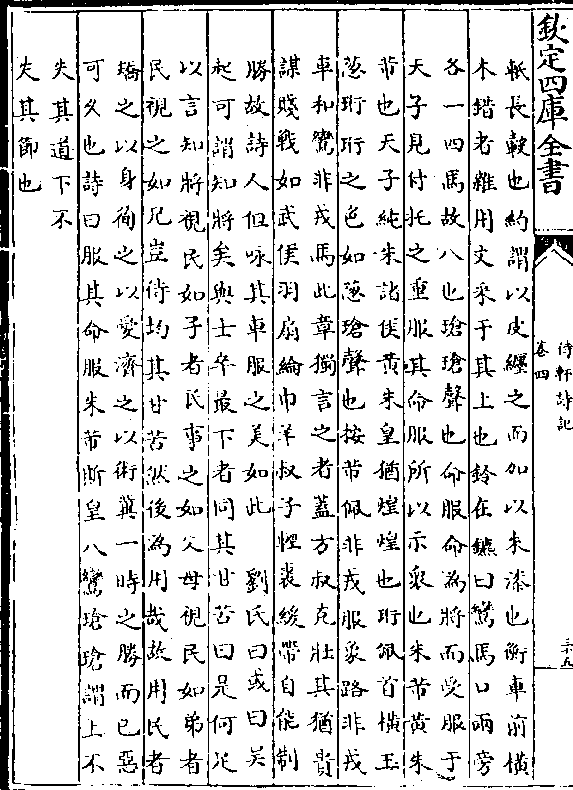 欽定四庫全書
待軒詩記
卷四
三十五
軝長轂也約謂以皮纒之而加以朱漆也衡車前橫
木錯者雜用文采于其上也鈴在鑣曰鸞馬口兩旁
各一四馬故八也瑲瑲聲也命服命為將而受服于
天子見付托之重服其命服所以示衆也朱芾黃朱
芾也天子純朱諸侯黃朱皇猶煌煌也珩佩首橫玉
葱珩珩之色如葱瑲聲也按芾佩非戎服象路非戎
車和鸞非戎馬此章獨言之者蓋方叔克壯其猶貴
謀賤戰如武侯羽扇綸巾羊叔子輕裘緩帶自能制
勝故詩人但咏其車服之美如此　劉氏曰或曰吳
起可謂知將矣與士卒最下者同其甘苦曰是何足
以言知將視民如子者民事之如父母視民如弟者
民視之如兄豈待均其甘苦然後為用哉故用民者
矯之以身徇之以愛濟之以術冀一時之勝而已惡
可久也詩曰服其命服朱芾斯皇八鸞瑲瑲謂上不
失其道下不
失其節也